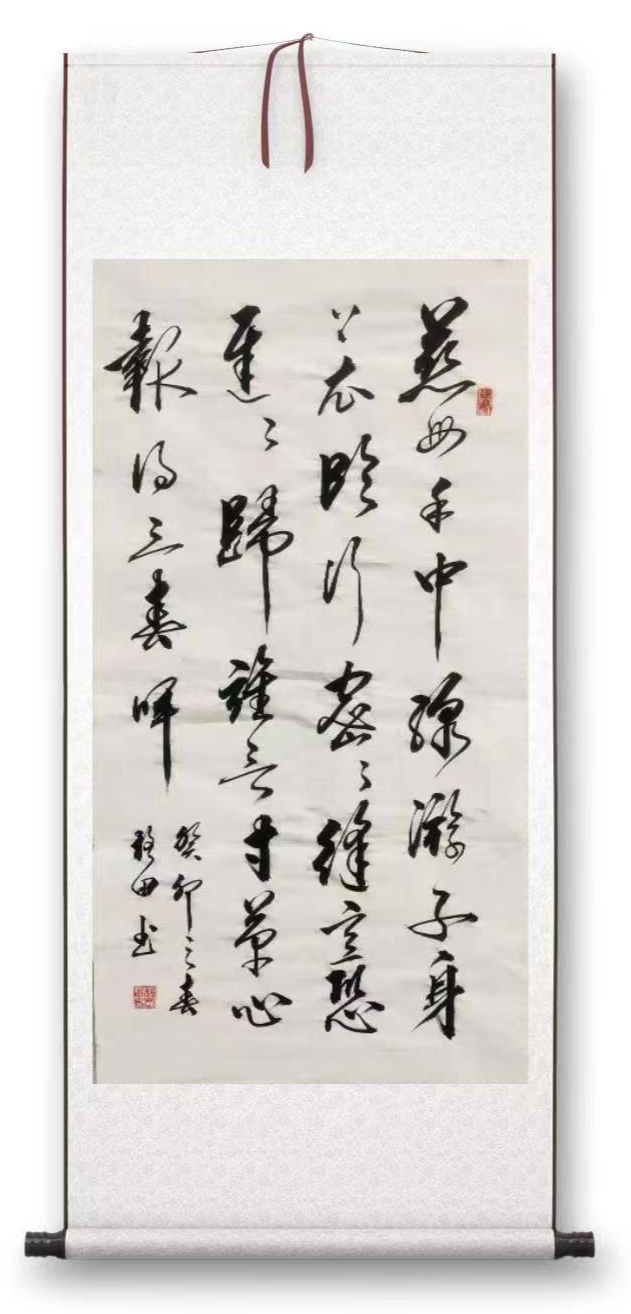 慈母手中線游子身
上衣臨行密〻縫意恐
遲〻歸誰言寸草心
報得三春暉
癸卯之春
田书